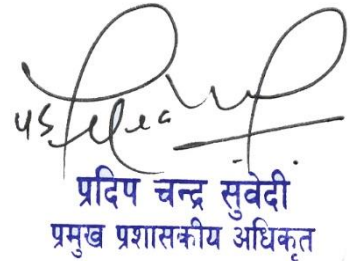 प्रदिप चन्द्र सुवेदी
प्रमुख प्रशासकीय अधिकृत